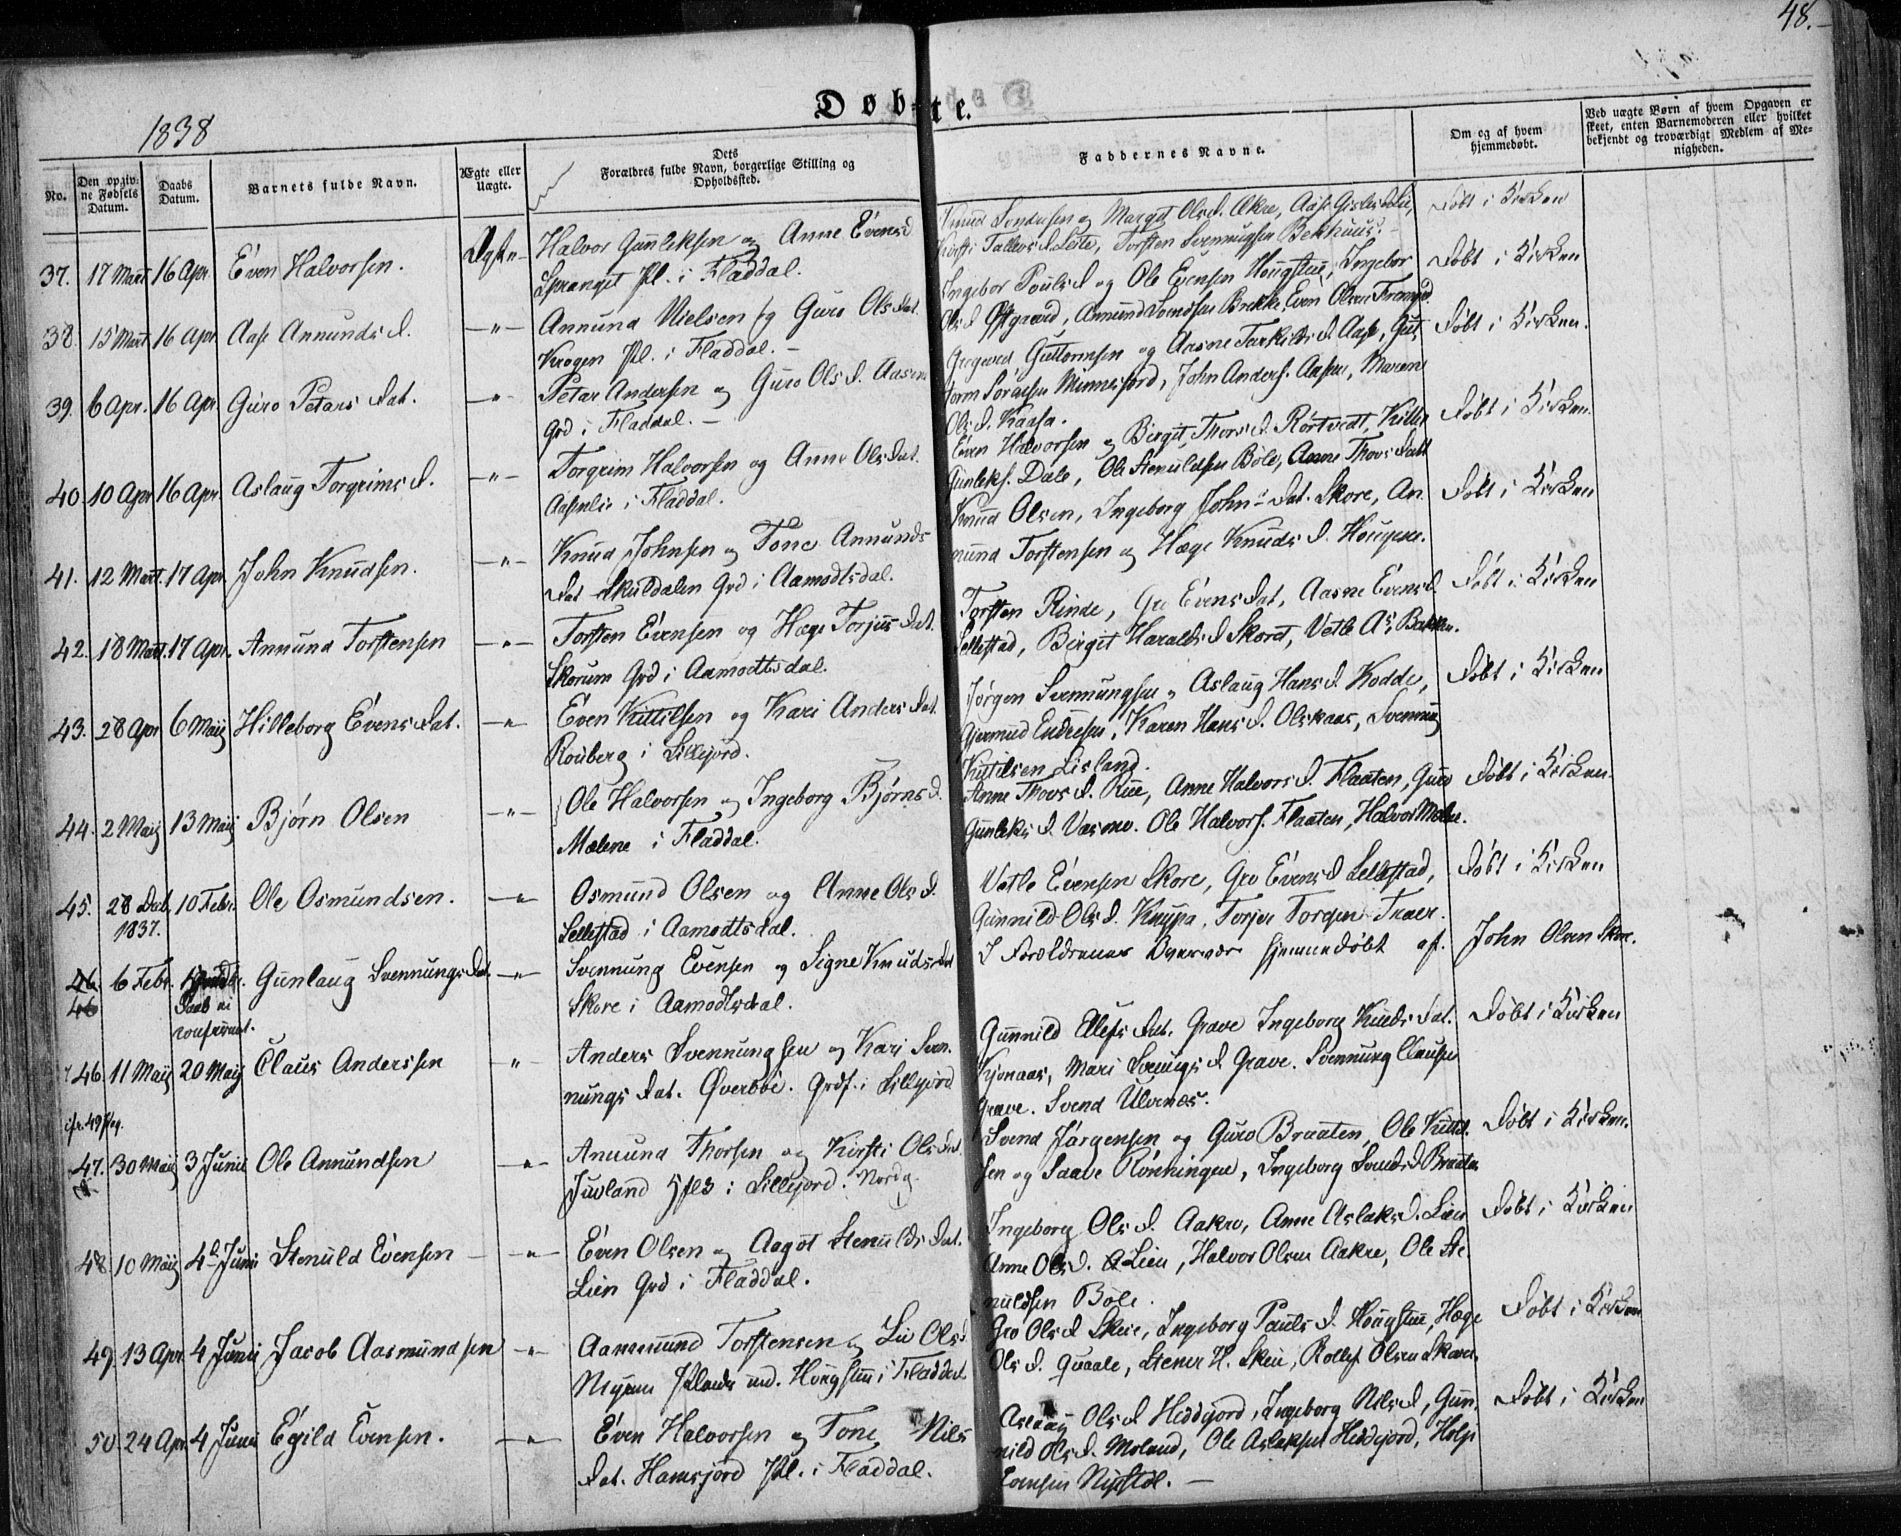 48.
1838
Døbte.
No.
Den opgivne Fødsels Datum.
Daabs Datum.
Barnets fulde Navn.
Ægte eller Uægte.
Dets Forældres fulde Navn, borgerlige Stilling og Opholdssted.
Faddernes Navne.
Om og af hvem hjemmedøbt.
Ved uægte Børn af hvem Opgaven er skeet, enten Barnemoderen eller hvilket bekjendt og troværdigt Medlem af Menigheden.
37. 17 Mart 16 Apr. Even Halvorsen. Ægte Halvor Gunleksen og Anne Evensd
Spranget Pl. i Fladdal.
Knud Svendsen og Margit Olsd. Akre, Aase
Kirsti Tallevsd. Leite, Torsten Svennugsen Bekhuus.
Døbt i Kirken
38. 15 Mart 16 Apr. Aase Annundsd. —"— Annund Nielsen og Guro Olsdat.
Krogen Pl. i Fladdal. —
Ingebor Poulsd og Ole Evensen Hougstue, Ingebor
Olsd Østgaard, Annund Svendsen Brekke, Even Olsen
Døbt i Kirken
39. 6 Apr. 16 Apr. Guro Petersdat. —"— Petar Andersen og Guro Olsd. Aasen
Grd i Fladdal. —
Gregard Guttormsen og Aasne Tarkildsd Aase, Gut
torm Minnesjord, John Anders. Aasen, Maren
Olsd. Kaasa.
Døbt i Kirken.
40 10 Apr 16 Apr. Aslaug Torgrimsd. —"— Torgrim Halvorsen og Anne Olsdat.
Aasenlie i Fladdal.
Even Halvorsen og Birgit Thorsd. Rørtvedt, Kittil
Gunleks. Dale, Ole Stenuldsen Bøle, Anne Thorsdatt
Døbt i Kirken.
41. 12 Mart. 17 Apr. John Knudsen. —"— Knud Johnsen og Tone Annunds
dat Skuldalen Grd i Aamodtsdal.
Knud Olsen, Ingeborg Johnsdat. Skore, An
nund Torstensen og Hæge Knudsd.
Døbt i Kirken
42. 18 Mart. 17 Apr. Annund Torstensen —"— Torsten Evensen og Hæge Torjusdat.
Skorum Grd i Aamodtsdal.
Torsten Rinde, Gro Evensdat, Aasne Evensd.
Sellestad, Birgit Haraldsd Skore, Vetle As. Bakken.
Døbt i Kirken
43. 28 Apr 6 Maij Hilleborg Evensdat. —"— Even Kittilsen og Kari Andersdat.
Rouberg i Sillejord.
Jørgen Svennungsen og Aslaug Hansd. Kodde,
Gjermund Endresen, Karen Hansd. Olskaas, Svennung
Kittilsen Lisland.
Døbt i Kirken
44. 2 Maij 13 Maij Bjørn Olsen —"— Ole Halvorsen og Ingeborg Bjørnsd.
Mælene i Fladdal.
Anne Thorsd. Rue, Anne Halvorsd. Flaaten, Guro
Gunleksd. Vasmo. Ole Halvors. Flaaten, Halvor Melen.
Døbt i Kirken.
45. 28 Deb. 1837. 10 Febr. Ole Osmundsen. —"— Osmund Olsen og Anne Olsd.
Sellestad i Aamodtsdal.
Vetle Evensen Skore, Gro Evensd Sellestad,
Gunnild Olsd. Knuppa, Torjer Torgen Traer.
Døbt i Kirken
46. 46 6 Febr. Daab ei confirmt. Gunlaug Svennungsdat —"— Svennung Evensen og Signe Knudsdat
Skore i Aamodtsdal.
I Forældrenes Overvær hjemmedøbt af. John Olsen Skore.
46. 11 Maij 20 Maij Claus Anderssen " Anders Svennungsen og Kari Sven
nungsdat. Øverbøe. Grdf. i Sillejord
Gunnild Ellefsdat. Grave Ingeborg Knudsdat.
Kjonaas, Mari Svenungsd Grave. Svennung Clausen
Grave. Svend Ulvenes.
Døbt i Kirken
47. 30 Maij 3 Junii Ole Annundsen —"— Annund Thorsen og Kirsti Olsdat
Juvland i Sillejord. Nordg.
Svend Jørgensen og Guro Braaten, Ole Kittil
sen og Saave Rønningen, Ingeborg Svendsd Braaten
Døbt i Kirken.
48 10 Maij 4de Junii Stenuld Evensen —"— Even Olsen og Aagot Stenuldsdat.
Lien Grd i Fladdal.
Ingeborg Olsd. Aakre, Anne Aslaksd. Lien
Anne Olsd. Lien, Halvor Olsen Aakre, Ole Ste
nuldsen Bøle.
Døbt i Kirken
49 13 Apr 4 Junii Jacob Aasmundsen —"— Aanmund Torstensen og Liv Olsd.
Myrene Plads und. Hougstuu i Fladdal
Gro Olsd Skeie, Ingeborg Paulsd. Hougstuu, Hæge
Olsd. Quaale, Stener H. Skeie, Rollef Olsen Skare.
Døbt i Kirken
50. 24 Apr 4 Junii Egild Evensen. —"— Even Halvorsen og Tone Niels
dat. Hamsjord Pl. i Fladdal.
Aslaug Olsd Heddejord, Ingeborg Nilsd, Gun
nild Olsd. Moland, Ole Aslaksen Heddejord, Helje
Evensen Nipstol. —
Døbt i Kirken